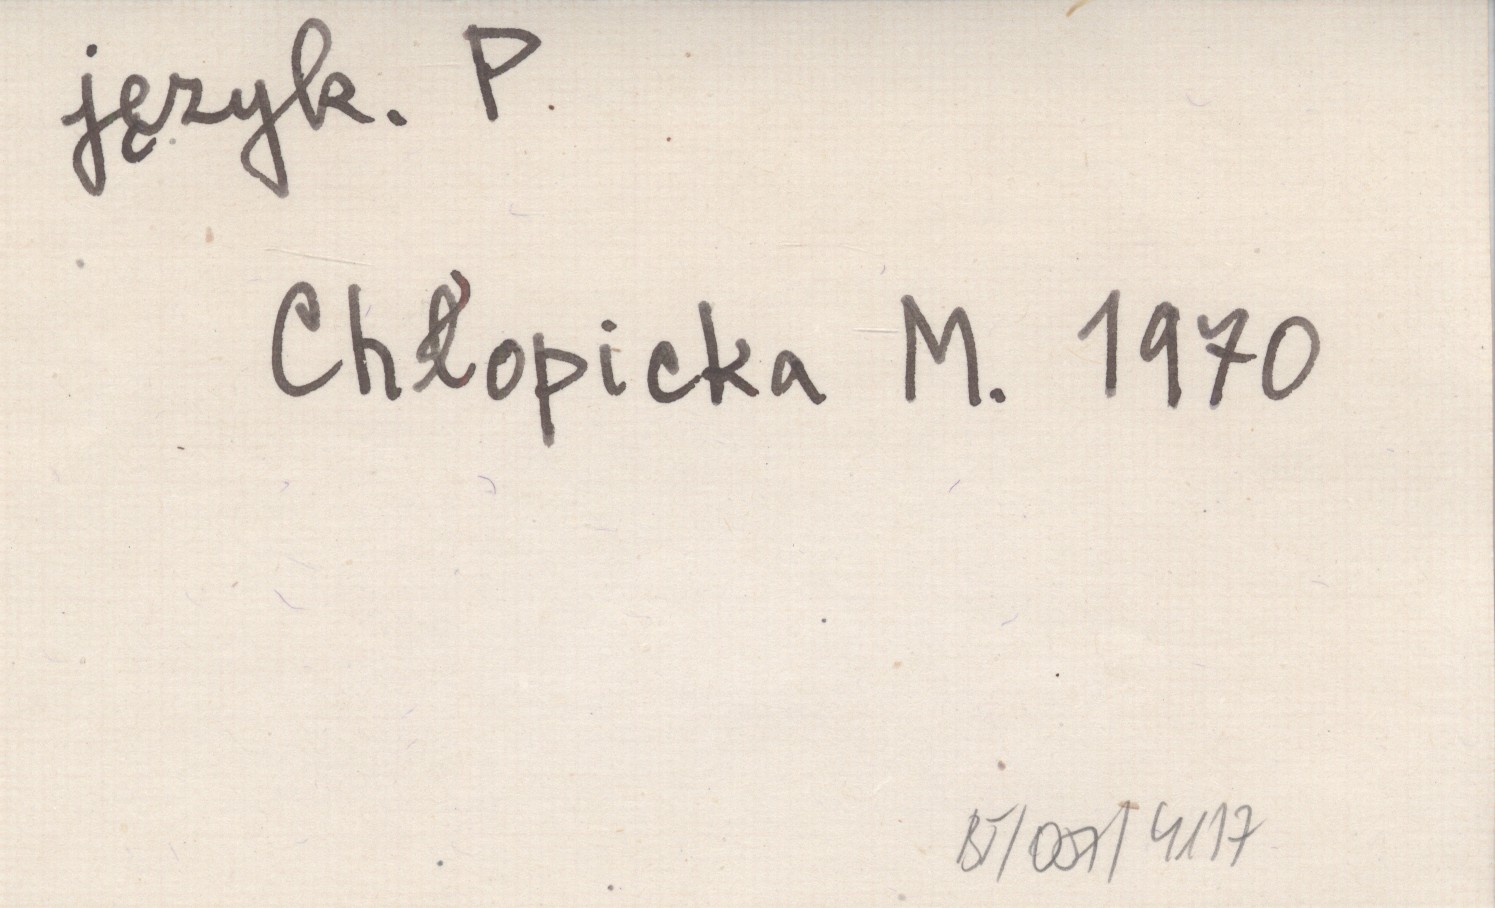 język. P.
Chłopicka M. 1970
BT/057/4117